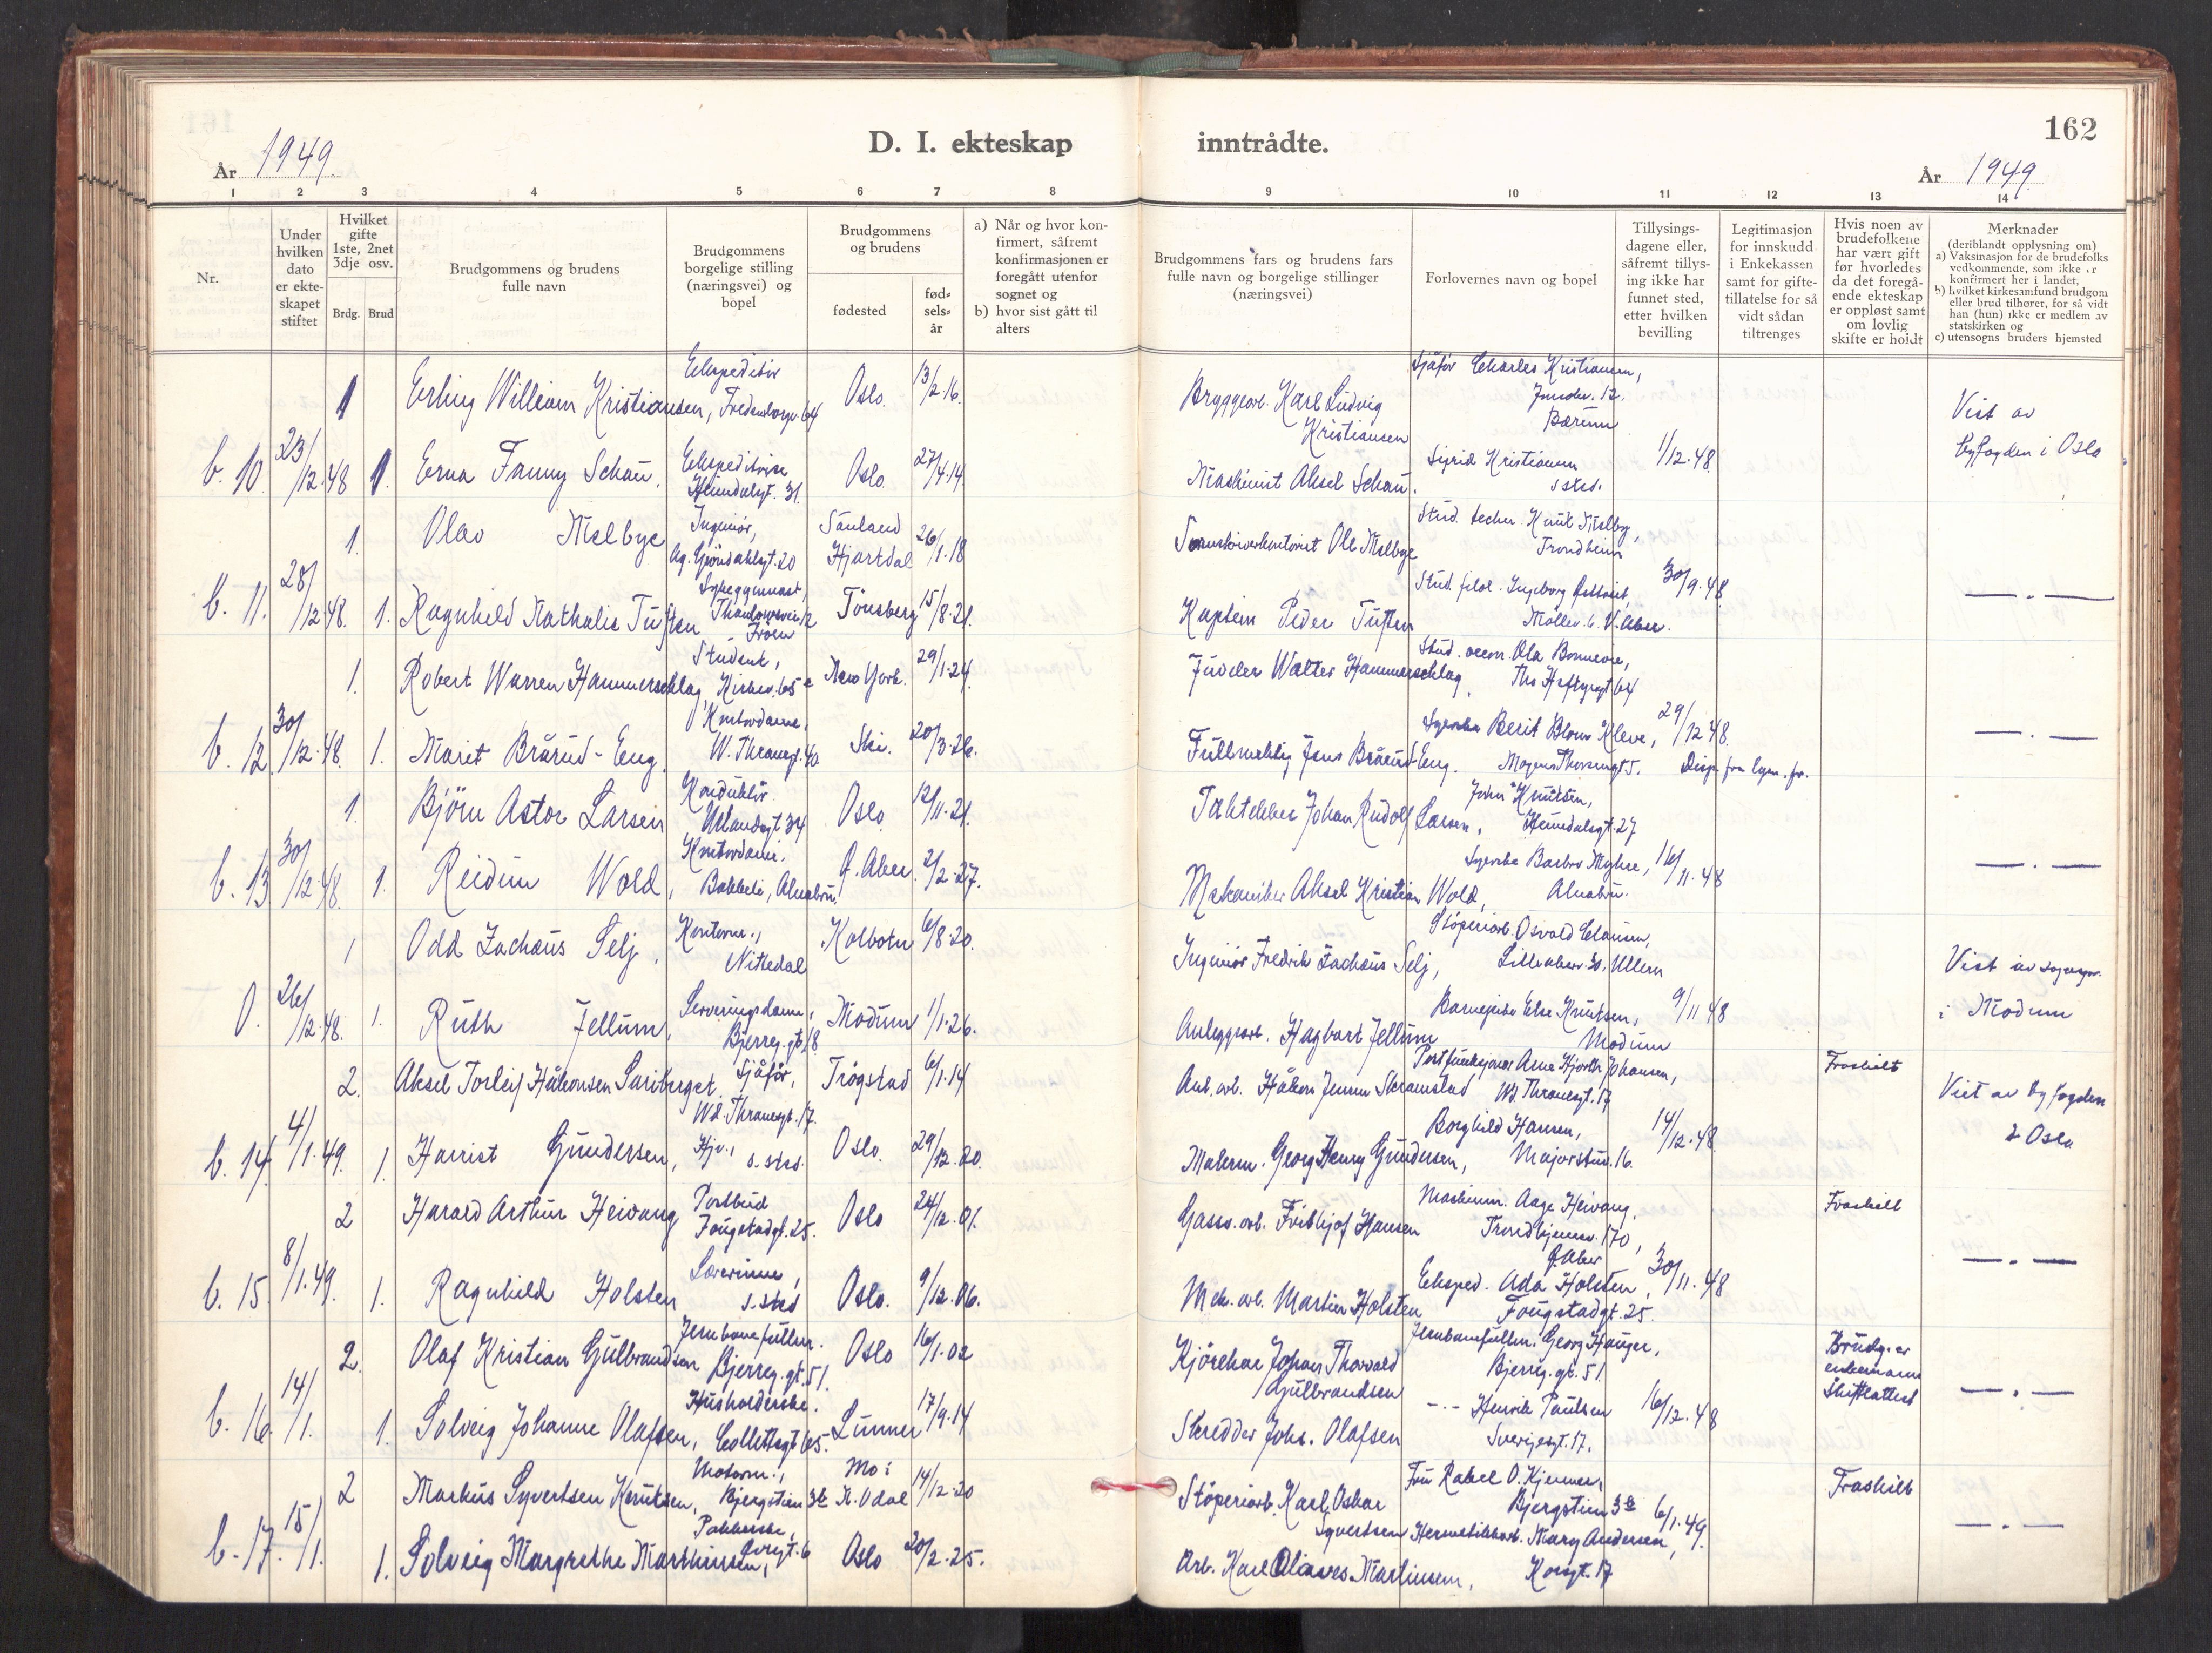 162
D. I. ekteskap inntrådte.
År 1949.
År 1949
1 2 3 4 5 6 7 8 9 10 11 12 13 14
Nr.
Under hvilken dato er ekteskapet stiftet
Hvilket gifte 1ste, 2net 3dje osv.
Brdg. Brud
Brudgommens og brudens fulle navn
Brudgommens borgelige stilling (næringsvei) og bopel
Brudgommens og brudens
fødested
fødselsår
a) Når og hvor konfirmert, såfremt konfirmasjonen er foregått utenfor sognet og
b) hvor sist gått til alters
Brudgommens fars og brudens fars fulle navn og borgelige stillinger (næringsvei)
Forlovernes navn og bopel
Tillysningsdagene eller, såfremt tillysing ikke har funnet sted, etter hvilken bevilling
Legitimasjon for innskudd i Enkekassen samt for giftetillatelse for så vidt sådan tiltrenges
Hvis noen av brudefolkene har vært gift før hvorledes da det foregående ekteskap er oppløst samt om lovlig skifte er holdt
Merknader
(deriblandt opplysning om)
a) Vaksinasjon for de brudefolks vedkommende, som ikke er konfirmert her i landet,
b) hvilket kirkesamfund brudgom eller brud tilhører, for så vidt han (hun) ikke er medlem av statskirken og
c) utensogns bruders hjemsted
1 Erling William Kristiansen, Ekspeditør Fredensborgv. 64 Oslo. 13/2.16. Bryggearb. Karl Ludvig Kristiansen Sjåfør Charles Kristiansen, 12. Bærum Viet av byfogden i Oslo
b. 10 23/12.48 1. Erna Fanny Schau, Ekspeditrise Heimdalsgt. 31. Oslo 27/4.14 Maskinist Aksel Schau. Sigrid Kristiansen s sted. 1/12.48
1. Olav Melbye Ingeniør, Ag. Grøndahlsgt. 20 Sauland Hjartdal 26/1.18 Ole Melbye Stud. techn. Knut Melby, Trondheim
b. 11. 28/12.48. 1. Ragnhild Nathalie Tuften Sykegymnast, Thaulowsvei 12 Frøen Tønsberg 15/8.21. Kaptein Peder Tuften Stud. filol. Ingeborg Møllerv. 6. V. Aker. 30/9.48 — . —
1. Robert Warren Hammerschlag, Student, Kirkev. 65 c New York. 29/1.24. Juveler Walter Hammerschlag Stud. oecon. Ola Bonnevie, Ths Heftyesgt 64
b. 12. 30/12.48. 1. Marit Brårud-Eng. Kontordame, W. Thranesgt. 40 Ski. 20/3.26. Fullmektig Jens Brårud-Eng. Berit Blom Kleve, Mogens Thorsensgt 5. 29/12 48. Disp. fra lysn. fr. — . —
1. Bjørn Astor Larsen Konduktør Urlandsgt 34 Oslo 12/11.21. Taktekker Johan Rudolf Larsen, John Knutsen, Heimdalsgt. 27
b. 13 30/12.48. 1. Reidun Wold, Kontordame. Bakkeli, Alnabru. Ø. Aker. 2/2.27. Mekaniker Aksel Kristian Wold, Barbro Myhre, Alnabru. 16/11.48 — . —
1 Odd Zachæus Selj, Kontorm., Nittedal Kolbotn 6/8.20. Ingeniør Fredrik Zachæus Selj, Støperiarb. Osvald Clausen, Lillakerv. 30. Ullern Viet av sognepr. i Modum
0. 26/12.48. 1. Ruth Jellum, Serveringsdame, Bjerreg. gt. 18 Modum 1/1.26. Anleggsarb. Hagbart Jellum Barnepike Else Knutsen, Modum 9/11 48
2. Aksel Torleif Håkonsen Sariberget. Sjåfør, Wd. Thranesgt. 17. Trøgstad 6/1.14 Anl. arb. Håkon Jensen Skramstad Postfunksjonær Arne Hjorth Johansen, Wd. Thranesgt. 17 Fraskilt Viet av byfogden i Oslo
b. 14. 4/1.49. 1. Harriet Gundersen, Hjv., s. sted. Oslo. 29/12.20. Malerm. Georg Henry Gundersen, Borghild Hansen, Majorstuv. 16. 14/12.48
2 Harald Arthur Heivang Postbud Fougstadgt. 25. Oslo 24/12.01. Gassv. arb. Frithjof Hansen Maskinm. Aage Heivang, Trondhjemsv. 170, Ø. Aker Fraskilt
b. 15. 8/1.49. 1. Ragnhild Holsten Lærerinne, s. sted Oslo. 9/12.06. Mek. arb. Martin Holsten Eksped. Ada Holsten, Fougstadgt. 25. 30/11.48 — . —
2. Olaf Kristian Gulbrandsen Jernbanefullm. Bjerreg. gt. 51. Oslo 16/1.02 Kjørekar Johan Thorvald Gulbrandsen Jernbanefullm. Georg Hauger, Bjerreg. gt. 51. Brudg. er enkemann Skifteattest
b. 16. 14/1. 1. Solveig Johanne Olafsen, Husholderske. Collettsgt 65. Lunner 17/9.14 Skredder Johs. Olafsen — . — Henrik Paulsen Sverigesgt. 17. 16/12.48 — . —
2 Markus Syvertsen Knutsen, Motorm., Bjergstien 3b Mo i N. Odal 14/12.20 Støperiarb. Karl Oskar Syvertsen Fru Rakel O. Kjennes, Bjergstien 3b Fraskilt
b. 17. 15/1. 1. Solveig Margrethe Marthinsen, Pakkerske, 6 Oslo 20/2.25. Arb. Karl Oliaves Martinsen, Hermetikkarb. Mary Andersen, Korsgt. 17 6/1.49. — . —